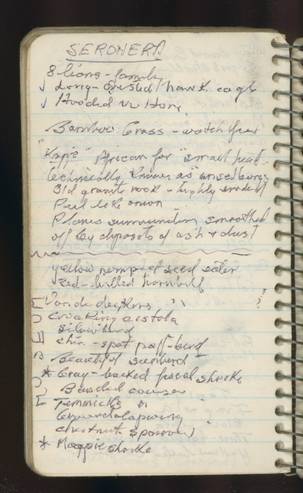 SERONERA
8 lions - family
√ Long-crested hawk eagle
√ Hooded Vulture
Bamboo Grass - watch fever
"Kopje" African for "small head"
technically known as inselberg
Old granite rock - highly eroded
Peel like onion
Plains surrounding smoothed
off by deposits of ash & dust
yellow rumped seed eater
Red-billed hornbill
Von der deckens " ?
Croaking cistola
Silverbird
Chin-spot puff-bird
Beautiful sunbird
* Gray-backed fiscal shrike
Banded courser
Temmicks "
chestnut sparrow
* Magpie shrike